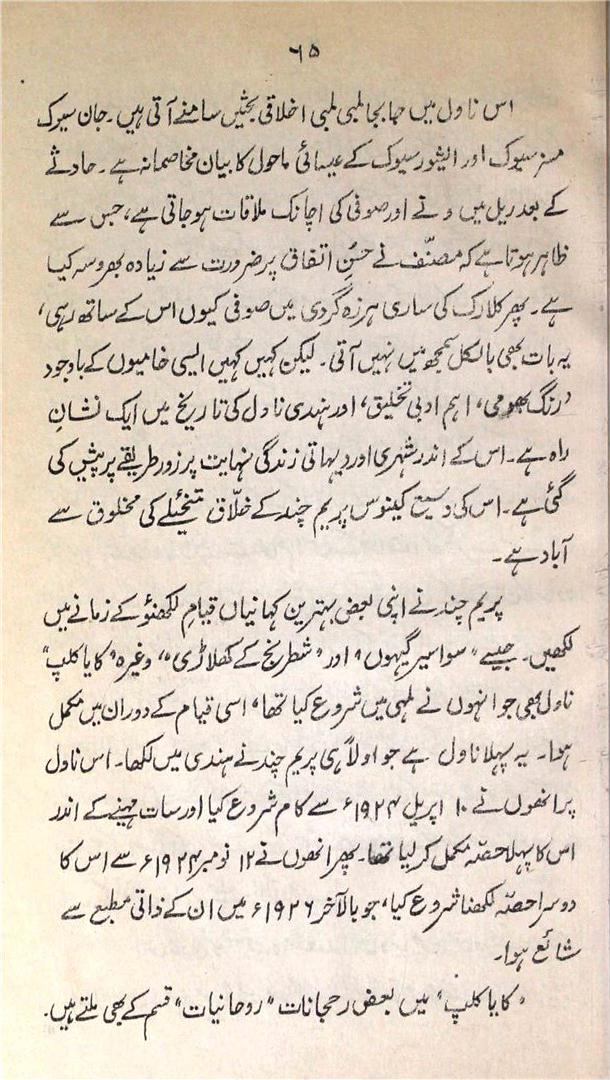 ۶۵
اس ناول میں جا بجا لمبی لمبی اخلاقی بحثیں سامنے آتی ہیں۔ جان سیوک
مسز سیوک اور ایشور سیوک کے عیسائی ماحول کا بیان مخاصمانہ ہے۔ حادثے
کے بعد ریل میں ونے اور صوفی کی اچانک ملاقات ہو جاتی ہے، جس سے
ظاہر ہوتا ہے کہ مصنّف نے حسنِ اتفاق پر ضرورت سے زیادہ بھروسہ کیا
ہے۔ پھر کلارک کی ساری ہرزہ گردی میں صوفی کیوں اس کے ساتھ رہی،
یہ بات بھی بالکل سمجھ میں نہیں آتی۔ لیکن کہیں کہیں ایسی خامیوں کے باوجود
'رنگ بھومی' اہم ادبی تخلیق، اور ہندی ناول کی تاریخ میں ایک نشانِ
راہ ہے۔ اس کے اندر شہری اور دیہاتی زندگی نہایت پر زور طریقے پر پیش کی
گئی ہے۔ اس کی وسیع کینوس پریم چند کے خلّاق تخیئلے کی مخلوق سے
آباد ہے۔
پریم چند نے اپنی بعض بہترین کہانیاں قیامِ لکھنؤ کے زمانے میں
لکھیں۔ جیسے "سوا سیر گیہوں" اور "شطرنج کے کھلاڑی"، وغیرہ "کایا کلپ"
ناول بھی جو انہوں نے لمہی میں شروع کیا تھا، اسی قیام کے دوران میں مکمل
ہوا۔ یہ پہلا ناول ہے جو اولاً ہی پریم چند نے ہندی میں لکھا۔ اس ناول
پر انھوں نے ۱۰ اپریل ۱۹۲۴ء سے کام شروع کیا اور سات مہینے کے اندر
اس کا پہلا حصّہ مکمل کر لیا تھا۔ پھر انھوں نے ۱۲ نومبر ۱۹۲۴ء سے اس کا
دوسرا حصّہ لکھنا شروع کیا، جو بالآخر ۱۹۲۶ء میں ان کے ذاتی مطبع سے
شائع ہوا۔
'کایا کلپ' میں بعض رحجانات "روحانیات" قسم کے بھی ملتے ہیں۔